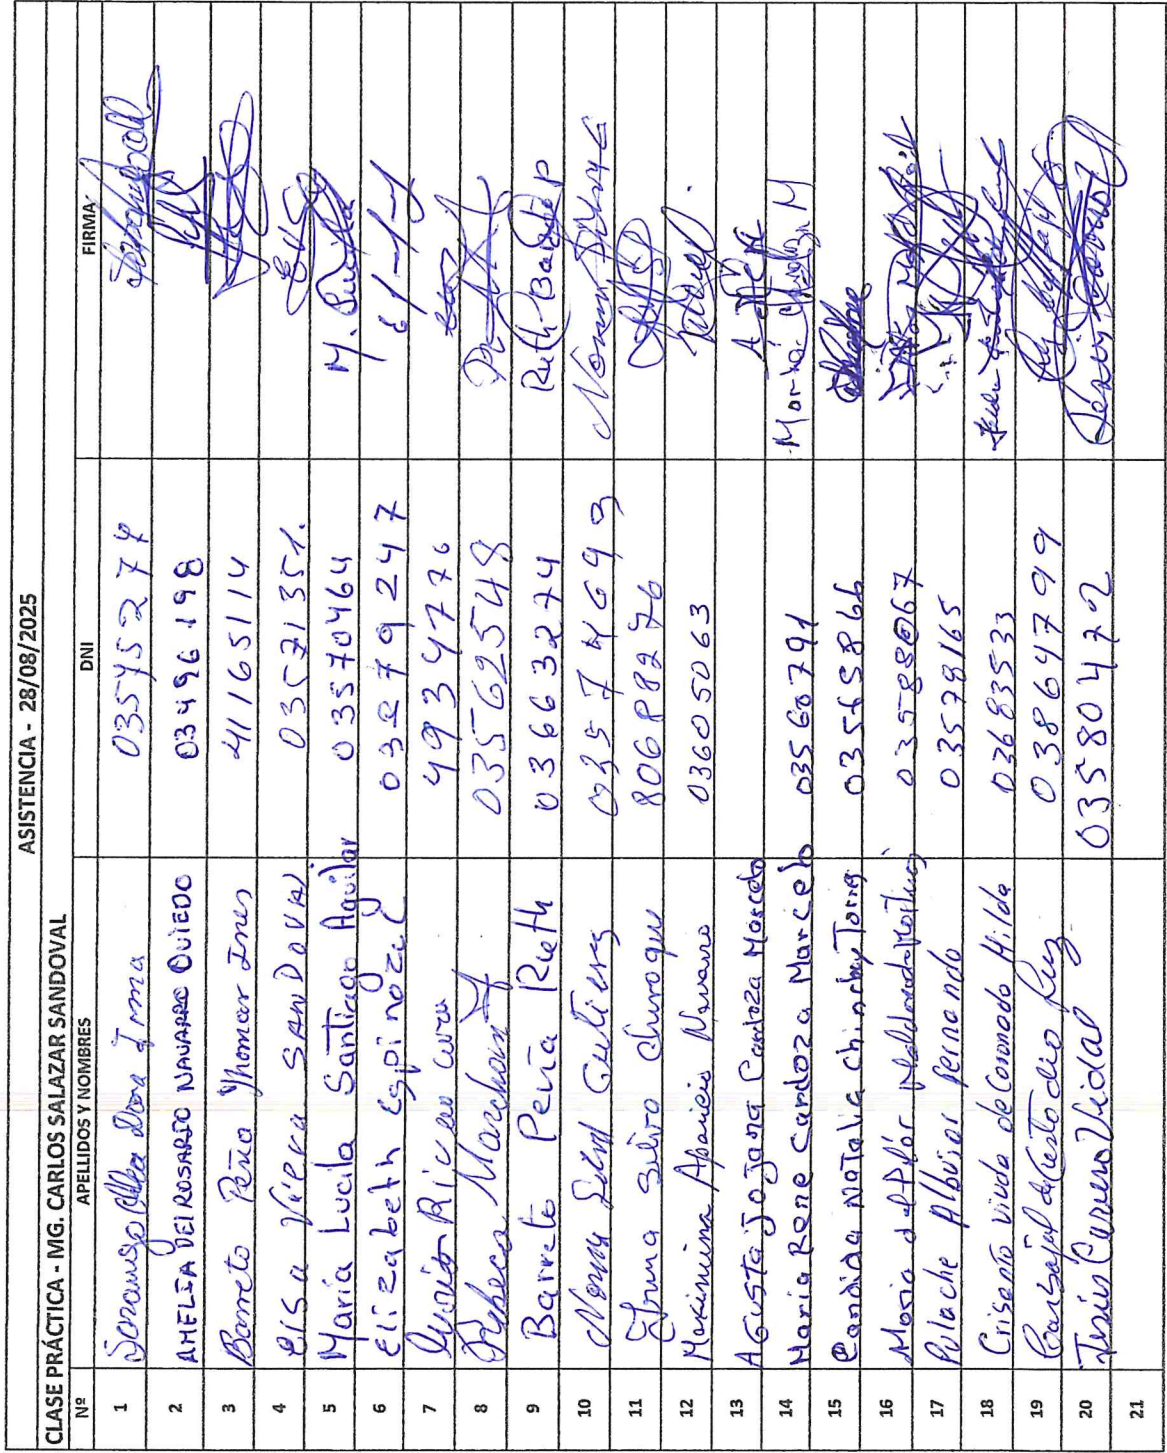 ASISTENCIA - 28/08/2025
CLASE PRÁCTICA - MG. CARLOS SALAZAR SANDOVAL
Nº APELLIDOS Y NOMBRES DNI FIRMA
1 Irma 03545274
2 AMELIA DEL ROSARIO NAVARRO OVIEDO 03496198
3 Barreto Peña Jhomar Ines 41165114
4 Elsa Viera SANDOVAL 03571351.
5 María Lucila Santiago Aguilar 03570464
6 Elizabeth Espinoza C 03279247
7 49934776
8 Rebeca Marchan 03562548
9 Barreto Peña Ruth 03663274 Ruth Barreto P
10 Norma Silva Gutierrez 03574693
11 Irma Silva Chiroque 80688276
12 Maximina Aparicio Navarro 03605063
13 AGUSTa jojana Cardoza Marcelo
14 Maria Rene Cardoza Marcelo 03560791 Maria Cardoza M
15 Candida Natalia Chinchay Torres 03565866
16 Maria del Pilar Maldonado 03588067
17 Pulache Albujar Fernando 03578165
18 Crisanto viuda de Coronado Hilda 02683533
19 Carbajal de Custodio Luz 03864799
20 Jesús Carrero Vidal 03580472
21